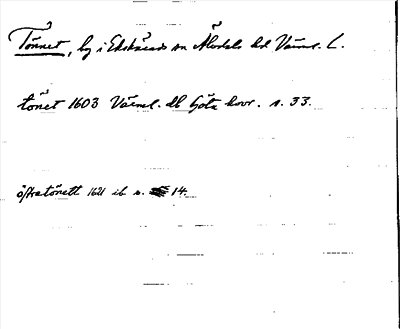 Tönnet, by i Ekshärads sn Älvdals hd Värml. L.
tönet 1603 Värml. db Göta hovr. s. 33.
öfratönett 1621 ib s. 14.